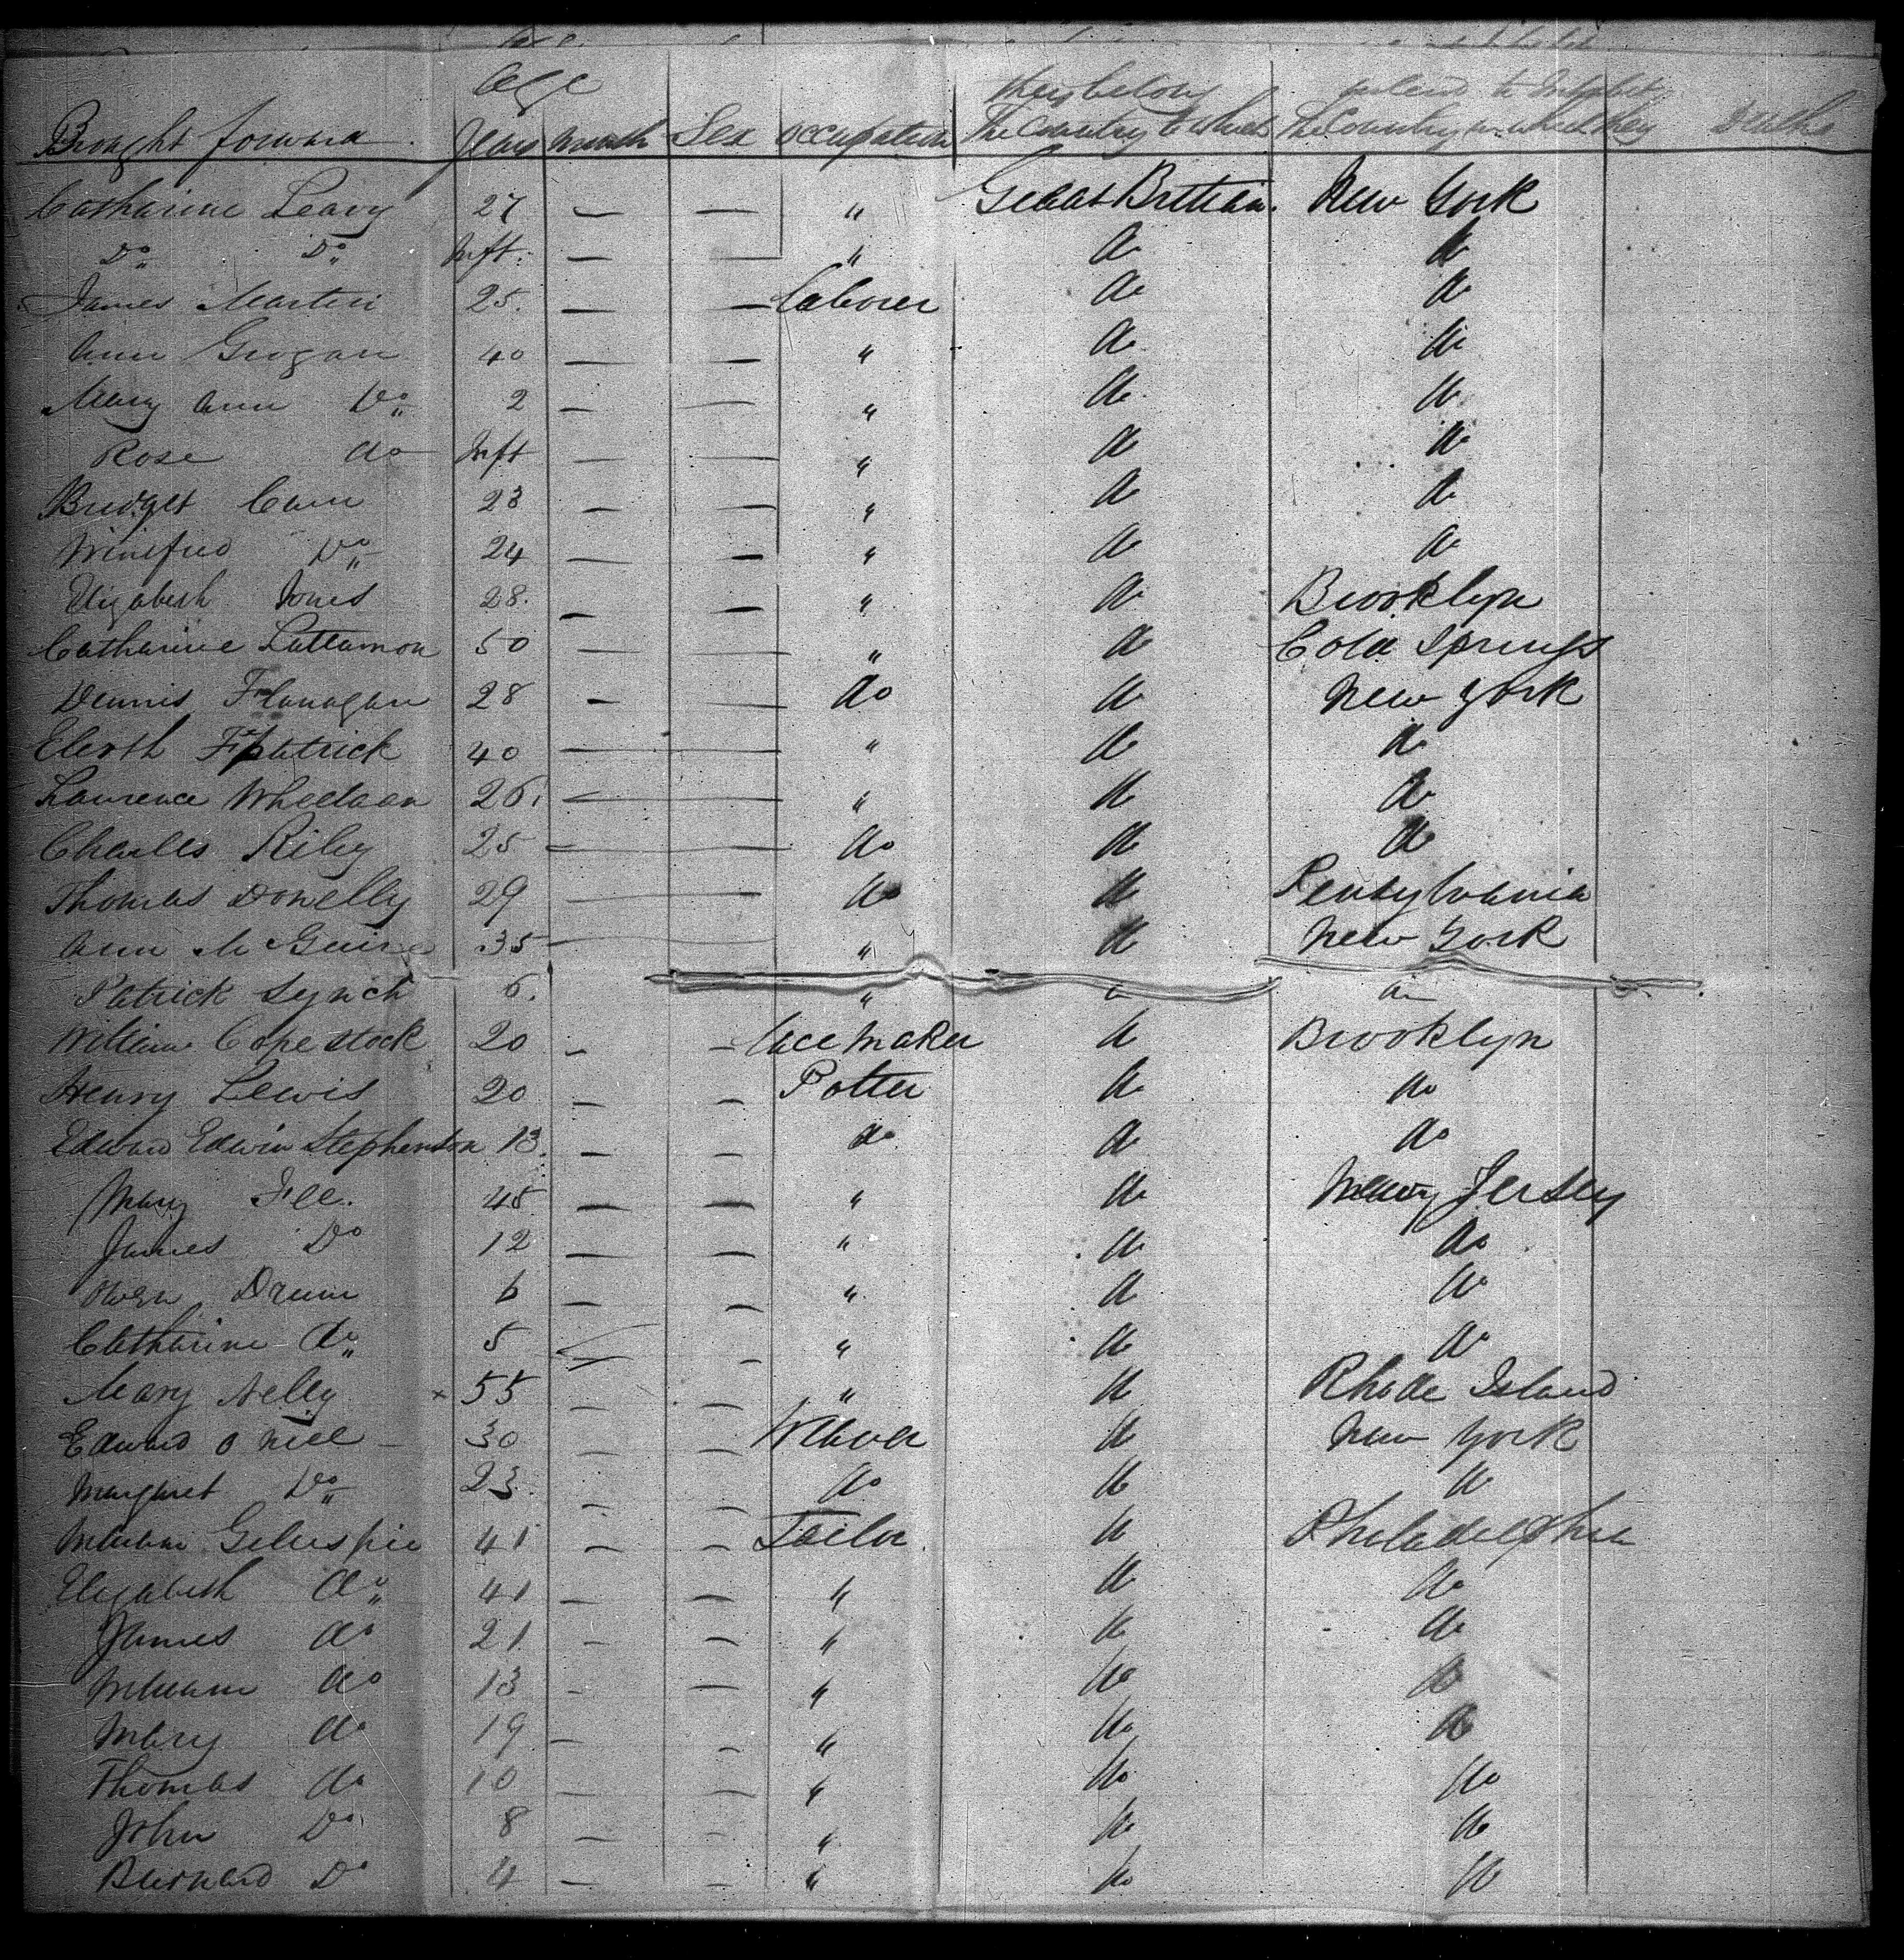 Age they belong intend to Inhabit
Brought forward. Years Month Sex Occupation The Country to which The Country in which they Deaths
Catharine Leavy 27 — — " Great Brittian. New York
Do Do Inft. — — " do do
James Martin 25. — — laborer do do
Ann Grogan 40 — — " do do
Mary Ann Do 2 — — " do do
Rose do Inft — — " do do
Bridget Cain 23 — — " do do
Winefred Do 24 — — " do do
Elizabeth Jones 28. — — " do Brooklyn
Catharine Lattamon 50 — — " do Cold Springs
Dennis Flanagan 28 — — do do New York
Fitzpatrick 40 — — " do do
Laurence Wheelaan 26. — — " do do
Charles Riley 25 — — do do do
Thomas Donelly 29 — — do do Pensylvania
Ann McGuire 35 — — " do New York
Patrick Lynch 6. " do do
William Copestock 20 — — lace maker do Brooklyn
Henry Lewis 20 — — Potter do do
Edward Edwin Stephenson 13. — — do do do
Mary Fee. 45 — — " do Jersey
James Do 12 — — " do do
Owen Drum 6 — — " do do
Catharine do 5 — — " do do
Mary Nelly x 55 — — " do Rhode Island
Edward O Neil — 30 — — Weaver do New York
Margaret Do 23. — — do do do
William Gilespie 41 — — Tailor. do Philadelphia
Elizabeth do 41 — — " do do
James do 21 — — " do do
William do 13 — — " do do
Mary do 19 — — " do do
Thomas do 10 — — " do do
John Do 8 — — " do do
Bernard Do 4 — — " do do